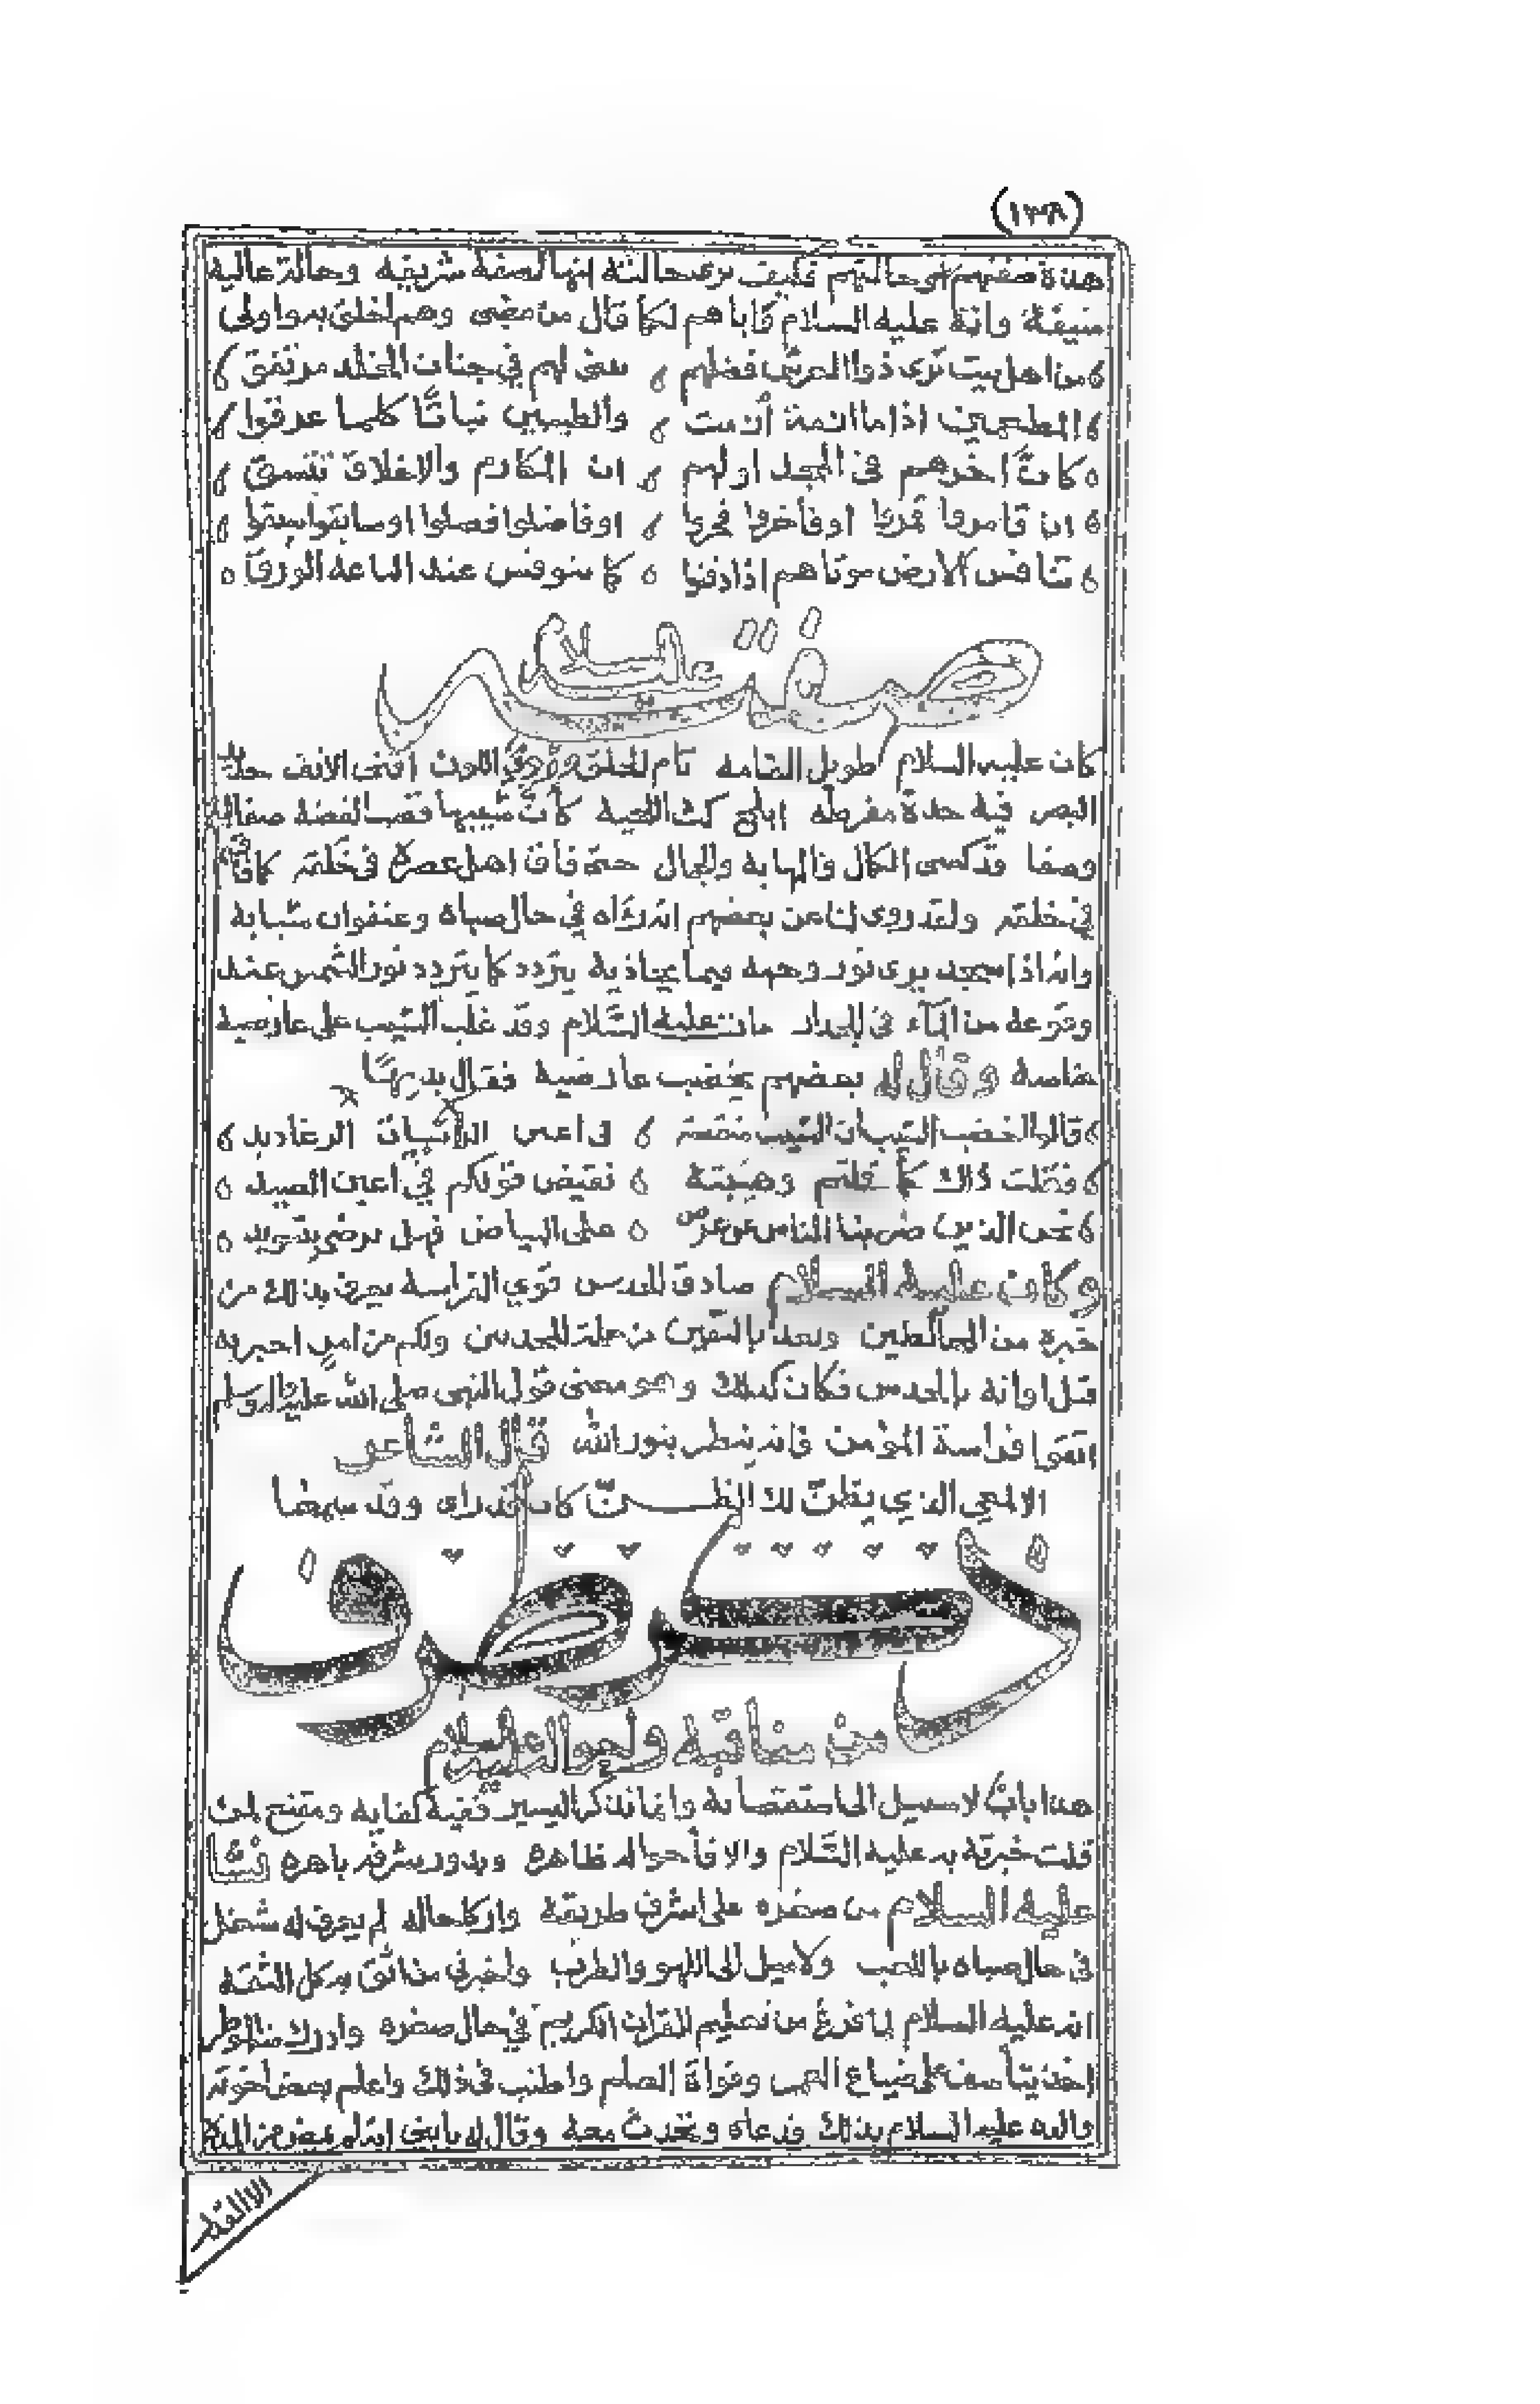 (١٣٨)
هذه صفتهم وحالتهم فكيف ترى حالته انها لصفة شريفة وحالة عالية
منيفة وانه عليه السلام وآباهم لكما قال من مضى وهم اخلق به واولى
من اهل بيت يرى ذوا العرش فضلهم يبنى لهم في جنان الخلد مرتفق
المطعمين اذا ما ازمة أزمت والطيبين ثيابًا كلما عرقوا
كانّ اخرهم في المجد اولهم ان المكارم والاخلاق تتسق
ان قامروا قمروا اوفاخروا فخروا اوفاضلوا فضلوا اوسابقوا سبقوا
تنافس الارض موتاهم اذا دفنوا كما تنوفس عند الباعة الورق
صفته عليه السلام
كان عليه السلام طويل القامة تام الخلق دري اللون اقنى الانف حديد
البصر فيه حدة مفرطه ابلج كث اللحية كأنّ شيبها قصب الفضة صفاء
وصفا وقد كسى الكمال والمهابة والجمال حتى فاق اهل عصره في خلقه كما فاقهم
في خلقه ولقد روى لنا عن بعضهم انه رآه في حال صباه وعنفوان شبابه
وانه اذا سجد يرى نور وجهه فيما يحاذيه يتردد كما يتردد نور الشمس عند
وقوعه من المآء في الجدار مات عليه السَّلام وقد غلب الشيب على عارضيه
خاصة وقال له بعضهم يخضب عارضية فقال بديهًا
قالوا اخضب الشيب ان الشيب منقصة في اعين الرعاديد
فقلت ذاك كما قلتم وهيبته نقيض قولكم في اعين الصيد
نحن الذين ضربنا الناس عن عرض على البياض فهل نرضى بتسويد
وكان عليه السلام صادق الحدس قوي الفراسة يعرف بذلك من
خبره من المخالطين ويعد باليقين من جملة المحدثين وكم من امرٍ اخبر به
قبل اوانه بالحدس فكان كذلك وهو معنى قول النبي صلى الله عليه واله وسلم
اتقوا فراسة المؤمن فانه ينظر بنور الله قال الشاعر
الالمعي الذي يظنّ لك الظنّ كان قد راى وقد سمعا
ذكر طرف
من مناقبه واحواله عليه السلام
هذا بابٌ لا سبيل الى استقصائه وانما نذكر اليسير ففيه كفاية ومقنع لمن
قلت خبرته به عليه السَّلام والا فأحواله ظاهرة وبدور شرفه باهرة نشأ
عليه السلام من صغره على اشرف طريقة وازكا حالة لم يعرف له شغل
في حال صباه بالعب ولا ميل الى اللهو والطرب واخبرني من اثق به كل الثقة
انه عليه السلام لما فرغ من تعليم القرآن الكريم في حال صغره وادرك منه الوطر
اخذ يتأسف على ضياع العمر وفوات العلم واطنب في ذلك واعلم بعض اخوته
والده عليه السلام بذلك فدعاه وتحدث معه وقال له يا بني
الا القليل